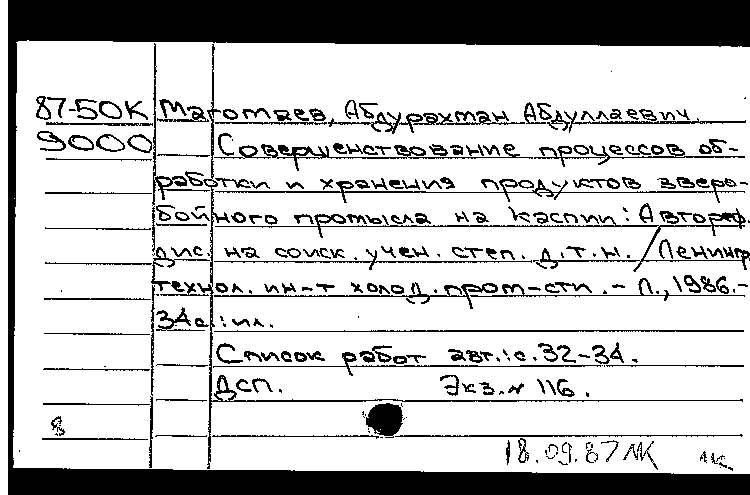 87-50К Магомаев, Абдурахман Абдуллаевич.
9000 Совершенствование процессов об-
работки и хранения продуктов зверо-
бойного промысла на Каспии: Автореф.
дис. на соиск. учен. степ. д.т.н. / Ленингр.
технол. ин-т холод. пром-сти. - Л., 1986.-
34с.: ил.
Список работ авт.: с. 32-34.
ДСП. Экз. № 116.
8
18.09.87